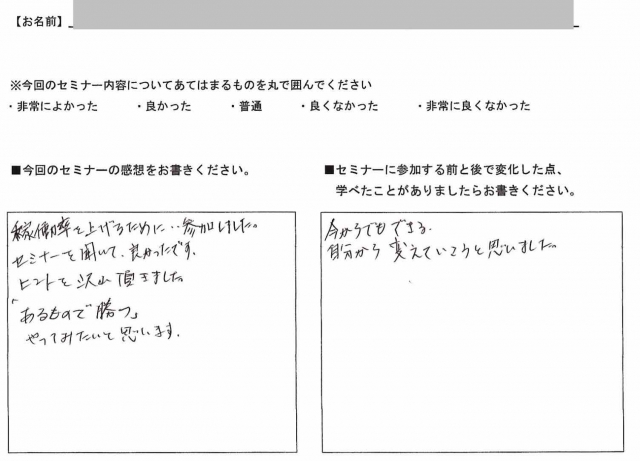 【お名前】
※今回のセミナー内容についてあてはまるものを丸で囲んでください
・非常によかった ・良かった ・普通 ・良くなかった ・非常に良くなかった
■今回のセミナーの感想をお書きください。
稼働率を上げるために‥参加しました。
セミナーを聞いて、良かったです。
ヒントを沢山頂きました。
「あるもので勝つ」
やってみたいと思います。
■セミナーに参加する前と後で変化した点、
学べたことがありましたらお書きください。
今からでもできる。
自分から変えていこうと思いました。